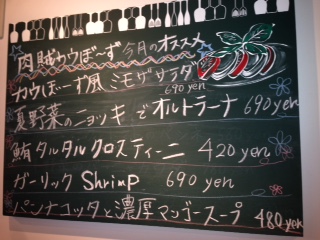 肉賊カウぼ〜ず 今月のオススメ
カウぼーず風 ミモザサラダ 690yen
夏野菜のニョッキ で オルトラーナ 690yen
鮪タルタル クロスティーニ 420yen
ガーリック Shrimp 690yen
パンナコッタと濃厚マンゴースープ 480yen